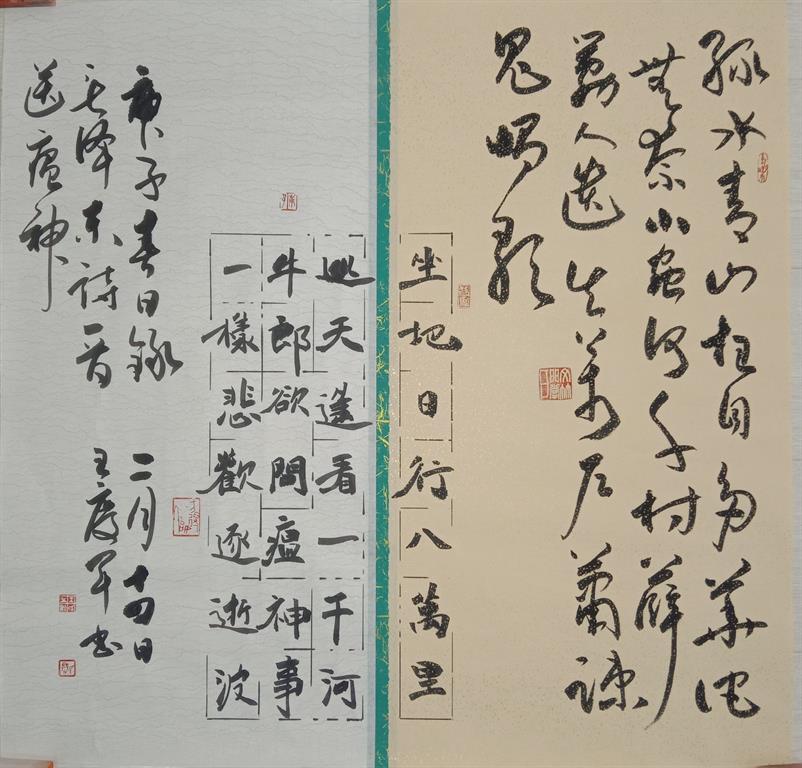 綠水青山枉自多華佗
無奈小蟲何千村薜
荔人遺矢萬户蕭疎
鬼唱歌
坐地日行八萬里
巡天遥看一千河
牛郎欲問瘟神事
一樣悲歡逐逝波
庚子春日錄
毛泽东诗一首
送瘟神
二月十四日
王度军书